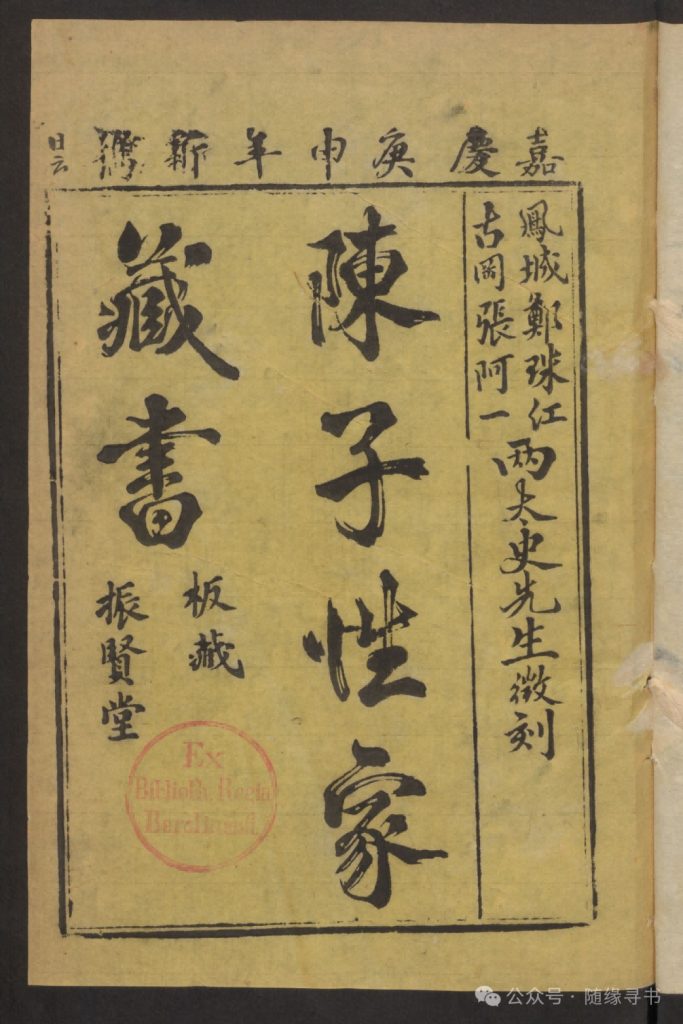 嘉慶庚申年新鐫
鳳城鄭珠江
古岡張阿一
兩太史先生徵刻
陳子性家
藏書
板藏
振賢堂
Ex
Biblioth. Regia
Berolinensi.
公众号 · 随缘寻书